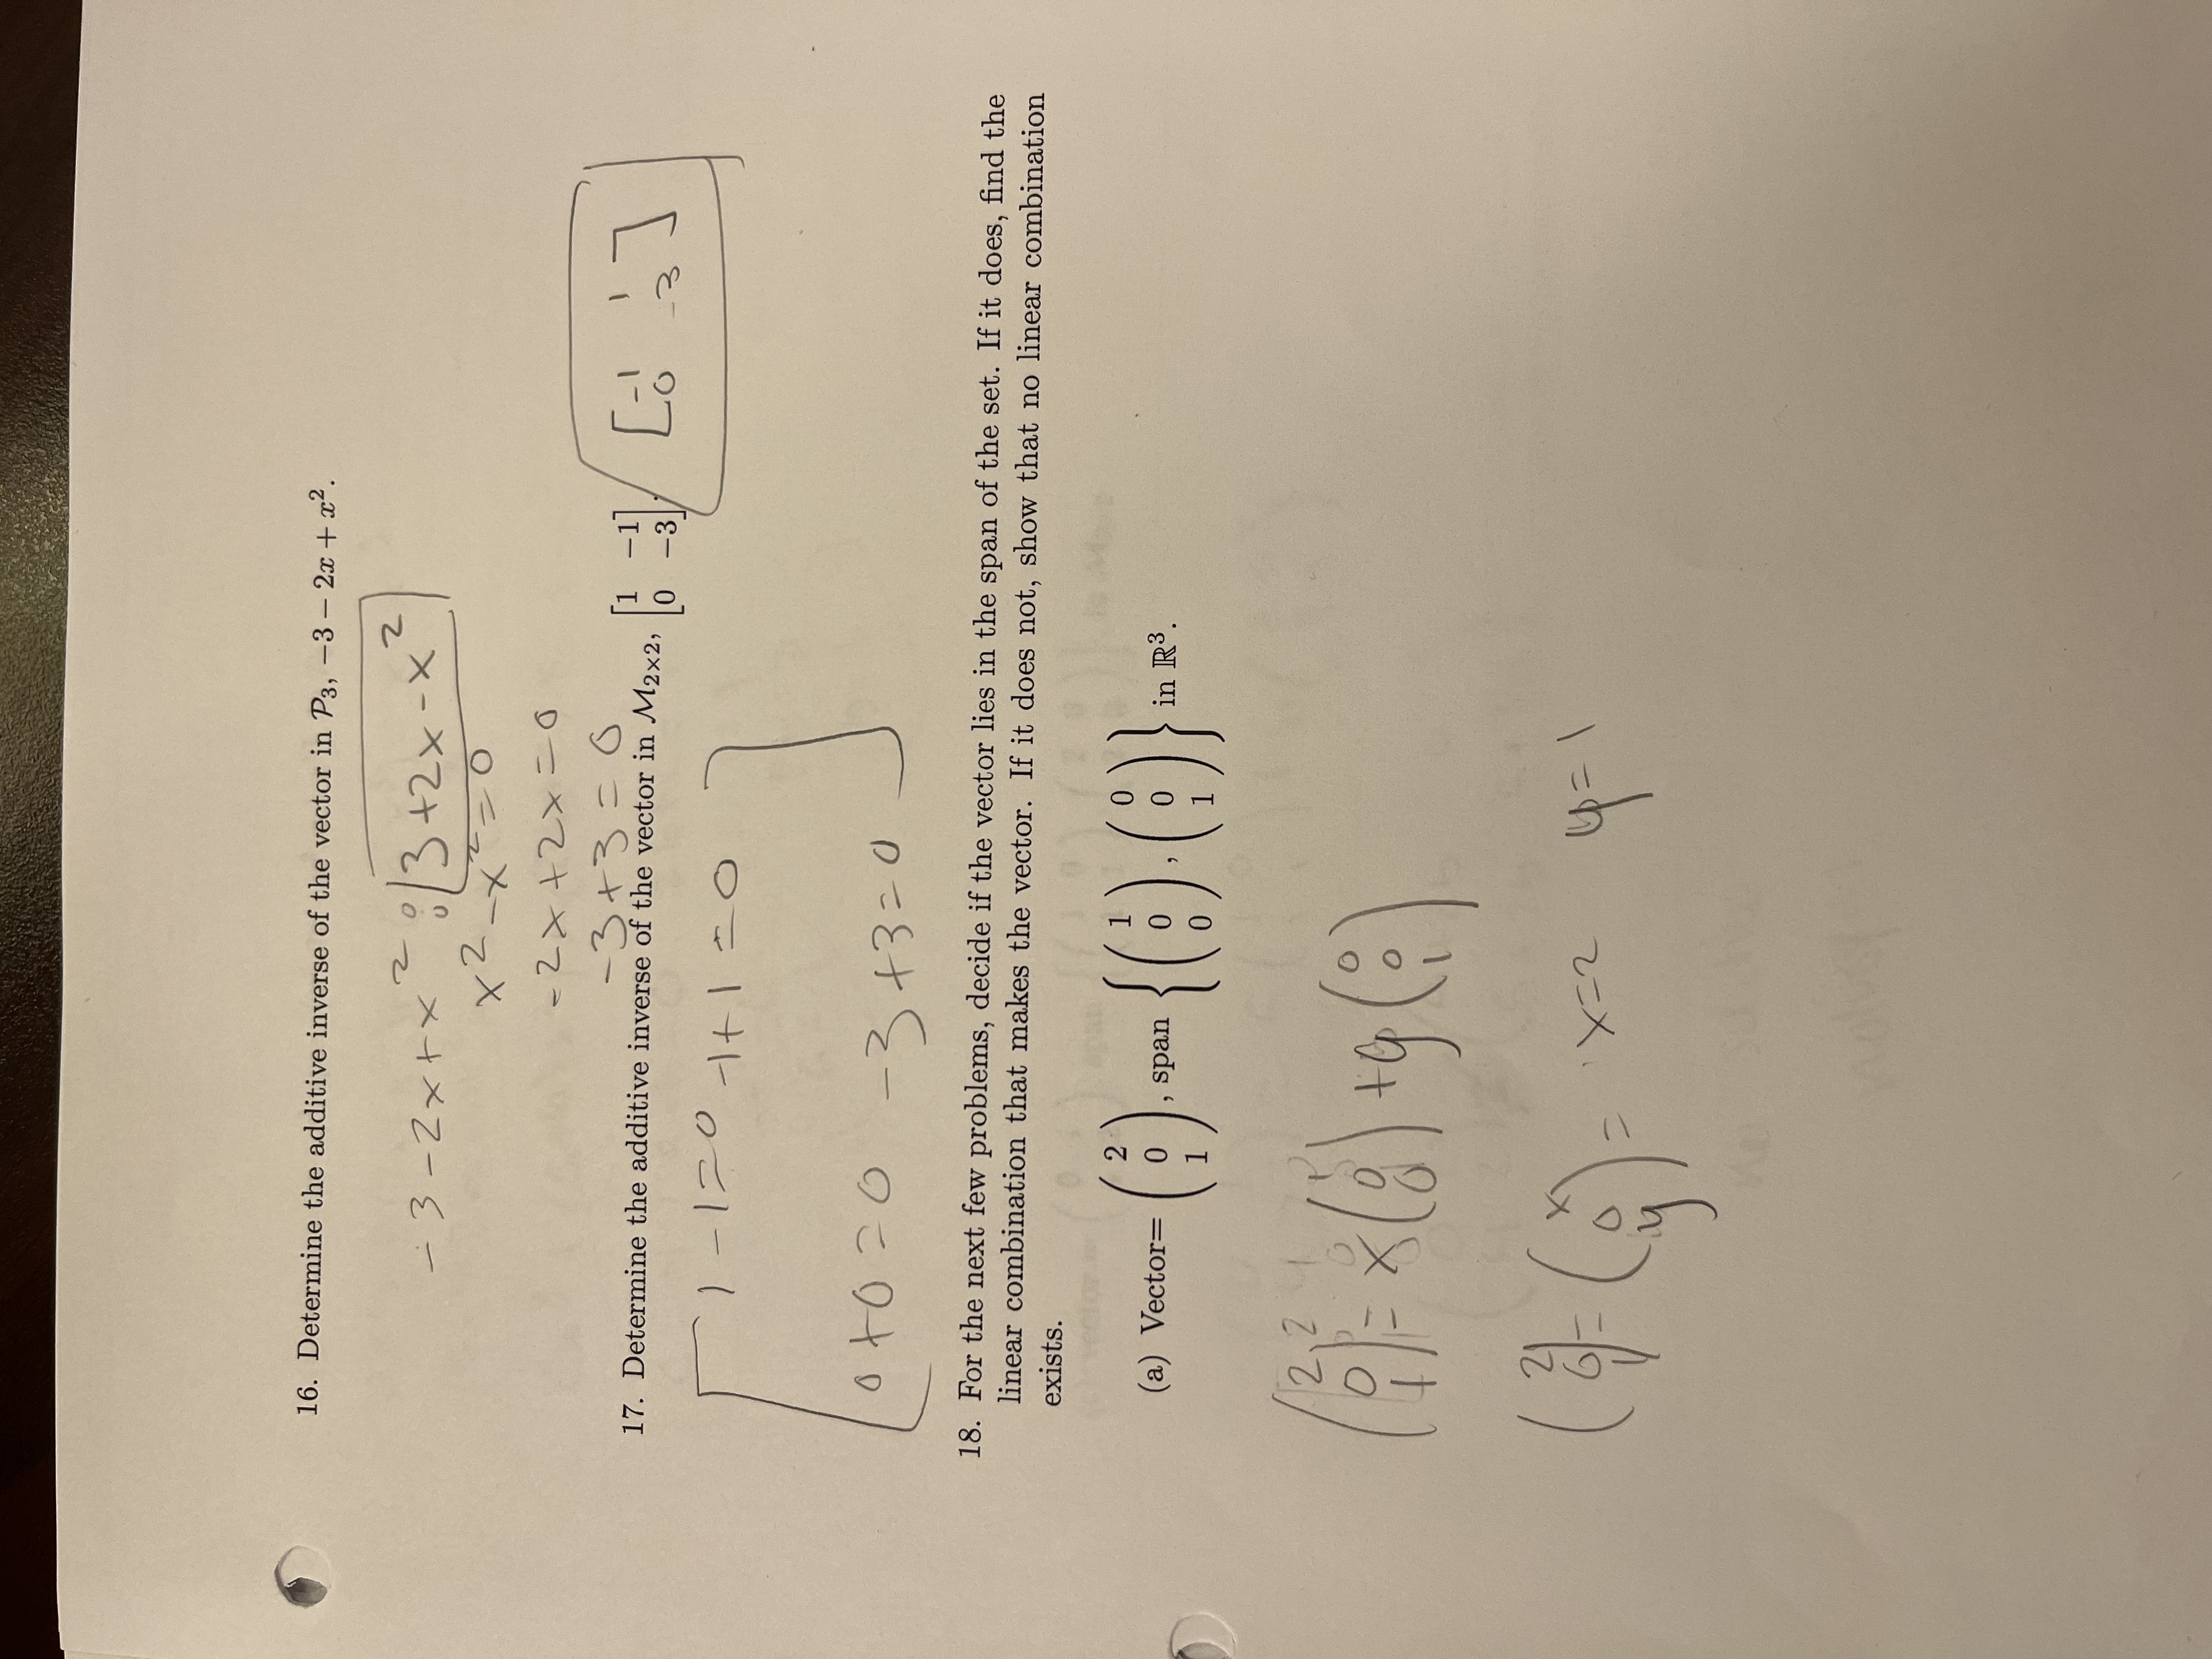 16. Determine the additive inverse of the vector in P₃, −3 − 2x + x².
-3-2x+x² : 3+2x-x²
x²-x²=0
-2x+2x=0
-3+3=0
17. Determine the additive inverse of the vector in M₂ₓ₂, [1 −1; 0 −3].
[-1 1; 0 -3]
1-1=0 -1+1=0
0+0=0 -3+3=0
18. For the next few problems, decide if the vector lies in the span of the set. If it does, find the
linear combination that makes the vector. If it does not, show that no linear combination
exists.
(a) Vector= (2 0 1), span {(1 0 0), (0 0 1)} in ℝ³.
(2 0 1) = x(1 0 0) + y(0 0 1)
(2 0 1) = (x 0 y) = x=2 y=1